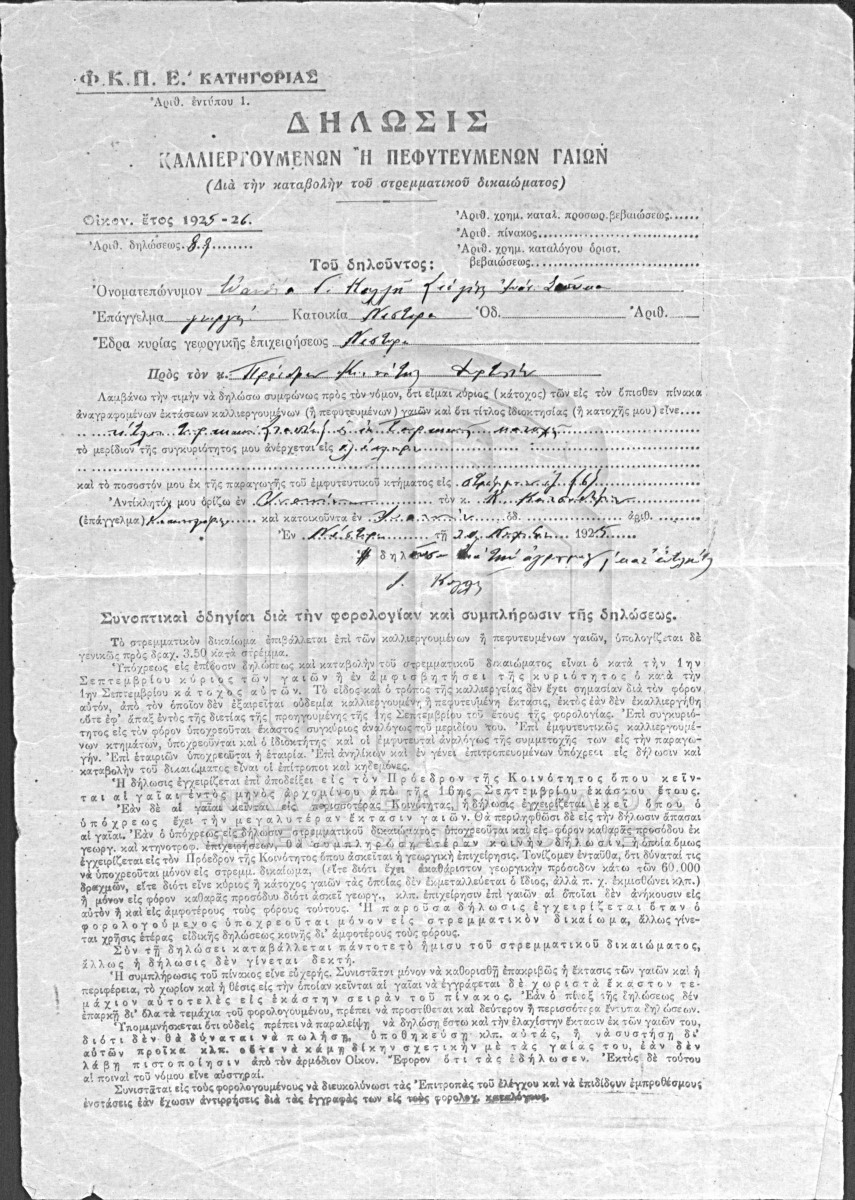 Φ.Κ.Π. Ε.' ΚΑΤΗΓΟΡΙΑΣ
Ἀριθ. ἐντύπου 1.
ΔΗΛΩΣΙΣ
ΚΑΛΛΙΕΡΓΟΥΜΕΝΩΝ Ἢ ΠΕΦΥΤΕΥΜΕΝΩΝ ΓΑΙΩΝ
(Διὰ τὴν καταβολὴν τοῦ στρεμματικοῦ δικαιώματος)
Οἰκον. ἔτος 1925-26.
Ἀριθ. χρημ. καταλ. προσωρ. βεβαιώσεως......
Ἀριθ. πίνακος
Ἀριθ. δηλώσεως
Ἀριθ. χρημ. καταλόγου ὁριστ.
βεβαιώσεως
Τοῦ δηλοῦντος:
Ὀνοματεπώνυμον
Ἐπάγγελμα Κατοικία Ὁδ. Ἀριθ.
Ἕδρα κυρίας γεωργικῆς ἐπιχειρήσεως
Πρὸς τὸν κ.
Λαμβάνω τὴν τιμὴν νὰ δηλώσω συμφώνως πρὸς τὸν νόμον, ὅτι εἶμαι κύριος (κάτοχος) τῶν εἰς τὸν ὄπισθεν πίνακα
ἀναγραφομένων ἐκτάσεων καλλιεργουμένων (ἢ πεφυτευμένων) γαιῶν καὶ ὅτι τίτλος ἰδιοκτησίας (ἢ κατοχῆς μου) εἶνε....
τὸ μερίδιον τῆς συγκυριότητος μου ἀνέρχεται εἰς
καὶ τὸ ποσοστόν μου ἐκ τῆς παραγωγῆς τοῦ ἐμφυτευτικοῦ κτήματος εἰς
Ἀντίκλητόν μου ὁρίζω ἐν τὸν κ.
(ἐπάγγελμα) καὶ κατοικοῦντα ἐν ὁδ. ἀριθ.
Ἐν τῇ 1925
Συνοπτικαὶ ὁδηγίαι διὰ τὴν φορολογίαν καὶ συμπλήρωσιν τῆς δηλώσεως.
Τὸ στρεμματικὸν δικαίωμα ἐπιβάλλεται ἐπὶ τῶν καλλιεργουμένων ἢ πεφυτευμένων γαιῶν, ὑπολογίζεται δὲ
γενικῶς πρὸς δραχ. 3.50 κατὰ στρέμμα.
Ὑπόχρεως εἰς ἐπίδοσιν δηλώσεως καὶ καταβολὴν τοῦ στρεμματικοῦ δικαιώματος εἶναι ὁ κατὰ τὴν 1ην
Σεπτεμβρίου κύριος τῶν γαιῶν ἢ ἐν ἀμφισβητήσει τῆς κυριότητος ὁ κατὰ τὴν
1ην Σεπτεμβρίου κάτοχος αὐτῶν. Τὸ εἶδος καὶ ὁ τρόπος τῆς καλλιεργείας δὲν ἔχει σημασίαν διὰ τὸν φόρον
αὐτόν, ἀπὸ τὸν ὁποῖον δὲν ἐξαιρεῖται οὐδεμία καλλιεργουμένη ἢ πεφυτευμένη ἔκτασις, ἐκτὸς ἐὰν δὲν ἐκαλλιεργήθη
οὔτε ἐφ' ἅπαξ ἐντὸς τῆς διετίας τῆς προηγουμένης τῆς 1ης Σεπτεμβρίου τοῦ ἔτους τῆς φορολογίας. Ἐπὶ συγκυριό-
τητος εἰς τὸν φόρον ὑποχρεοῦται ἕκαστος συγκύριος ἀναλόγως τοῦ μεριδίου του. Ἐπὶ ἐμφυτευτικῶς καλλιεργουμέ-
νων κτημάτων, ὑποχρεοῦνται καὶ ὁ ἰδιοκτήτης καὶ οἱ ἐμφυτευταὶ ἀναλόγως τῆς συμμετοχῆς των εἰς τὴν παραγω-
γήν. Ἐπὶ ἑταιριῶν ὑποχρεοῦται ἡ ἑταιρία. Ἐπὶ ἀνηλίκων καὶ ἐν γένει ἐπιτροπευομένων ὑπόχρεοι εἰς δήλωσιν καὶ
καταβολὴν τοῦ δικαιώματος εἶναι οἱ ἐπίτροποι καὶ κηδεμόνες.
Ἡ δήλωσις ἐγχειρίζεται ἐπὶ ἀποδείξει εἰς τὸν Πρόεδρον τῆς Κοινότητος ὅπου κεῖν-
ται αἱ γαῖαι ἐντὸς μηνὸς ἀρχομένου ἀπὸ τῆς 10ης Σεπτεμβρίου ἑκάστου ἔτους.
Ἐὰν δὲ αἱ γαῖαι κεῖνται εἰς περισσοτέρας Κοινότητας, ἡ δήλωσις ἐγχειρίζεται ἐκεῖ ὅπου ὁ
ὑπόχρεως ἔχει τὴν μεγαλυτέραν ἔκτασιν γαιῶν. Θὰ περιληφθῶσι δὲ εἰς τὴν δήλωσιν ἅπασαι
αἱ γαῖαι. Ἐὰν ὁ ὑπόχρεως εἰς δήλωσιν στρεμματικοῦ δικαιώματος ὑποχρεοῦται καὶ εἰς φόρον καθαρᾶς προσόδου ἐκ
γεωργ. καὶ κτηνοτροφ. ἐπιχειρήσεων, θὰ συμπληρώσῃ ἑτέραν κοινὴν δήλωσιν, ἡ ὁποία ὅμως
ἐγχειρίζεται εἰς τὸν Πρόεδρον τῆς Κοινότητος ὅπου ἀσκεῖται ἡ γεωργικὴ ἐπιχείρησις. Τονίζομεν ἐνταῦθα, ὅτι δύναταί τις
νὰ ὑποχρεοῦται μόνον εἰς στρεμμ. δικαίωμα, (εἴτε διότι ἔχει ἀκαθάριστον γεωργικὴν πρόσοδον κάτω τῶν 60.000
δραχμῶν, εἴτε διότι εἶνε κύριος ἢ κάτοχος γαιῶν τὰς ὁποίας δὲν ἐκμεταλλεύεται ὁ ἴδιος, ἀλλὰ π. χ. ἐκμισθώνει κλπ.)
ἢ μόνον εἰς φόρον καθαρᾶς προσόδου διότι ἀσκεῖ γεωργ., κλπ. ἐπιχείρησιν ἐπὶ γαιῶν αἱ ὁποῖαι δὲν ἀνήκουσιν εἰς
αὐτὸν ἢ καὶ εἰς ἀμφοτέρους τοὺς φόρους τούτους. Ἡ παροῦσα δήλωσις ἐγχειρίζεται ὅταν ὁ
φορολογούμενος ὑποχρεοῦται μόνον εἰς στρεμματικὸν δικαίωμα, ἄλλως γίνε-
ται χρῆσις ἑτέρας εἰδικῆς δηλώσεως κοινῆς δι' ἀμφοτέρους τοὺς φόρους.
Σὺν τῇ δηλώσει καταβάλλεται πάντοτε τὸ ἥμισυ τοῦ στρεμματικοῦ δικαιώματος,
ἄλλως ἡ δήλωσις δὲν γίνεται δεκτή.
Ἡ συμπλήρωσις τοῦ πίνακος εἶνε εὐχερής. Συνιστᾶται μόνον νὰ καθορισθῇ ἐπακριβῶς ἡ ἔκτασις τῶν γαιῶν καὶ ἡ
περιφέρεια, τὸ χωρίον καὶ ἡ θέσις εἰς τὴν ὁποίαν κεῖνται αἱ γαῖαι νὰ ἐγγράφεται δὲ χωριστὰ ἕκαστον τε-
μάχιον αὐτοτελὲς εἰς ἑκάστην σειρὰν τοῦ πίνακος. Ἐὰν ὁ πίναξ τῆς δηλώσεως δὲν
ἐπαρκῇ δι' ὅλα τὰ τεμάχια τοῦ φορολογουμένου, πρέπει νὰ προστίθεται καὶ δεύτερον ἢ περισσότερα ἔντυπα δηλώσεων.
Ὑπομιμνήσκεται ὅτι οὐδεὶς πρέπει νὰ παραλείψῃ νὰ δηλώσῃ ἔστω καὶ τὴν ἐλαχίστην ἔκτασιν ἐκ τῶν γαιῶν του,
διότι δὲν θὰ δύναται νὰ πωλήσῃ, ὑποθηκεύσῃ κλπ. αὐτάς, ἢ νὰ συστήσῃ δι'
αὐτῶν προῖκα κλπ. οὔτε νὰ κάμῃ δίκην σχετικὴν μὲ τὰς γαίας του, ἐὰν δὲν
λάβῃ πιστοποίησιν ἀπὸ τὸν ἁρμόδιον Οἰκον. Ἔφορον ὅτι τὰς ἐδήλωσεν. Ἐκτὸς δὲ τούτου
αἱ ποιναὶ τοῦ νόμου εἶνε αὐστηραί.
Συνιστᾶται εἰς τοὺς φορολογουμένους νὰ διευκολύνωσι τὰς Ἐπιτροπὰς τοῦ ἐλέγχου καὶ νὰ ἐπιδίδουν ἐμπροθέσμους
ἐνστάσεις ἐὰν ἔχωσιν ἀντιρρήσεις διὰ τὰς ἐγγραφάς των εἰς τοὺς φορολογ. καταλόγους.